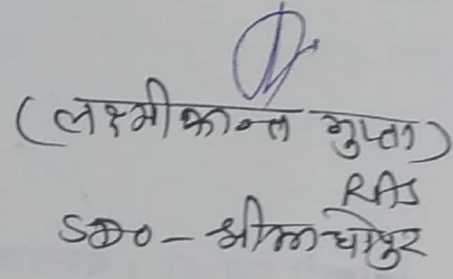 (लक्ष्मीकान्त गुप्ता)
RAS
SDO - श्रीमाधोपुर